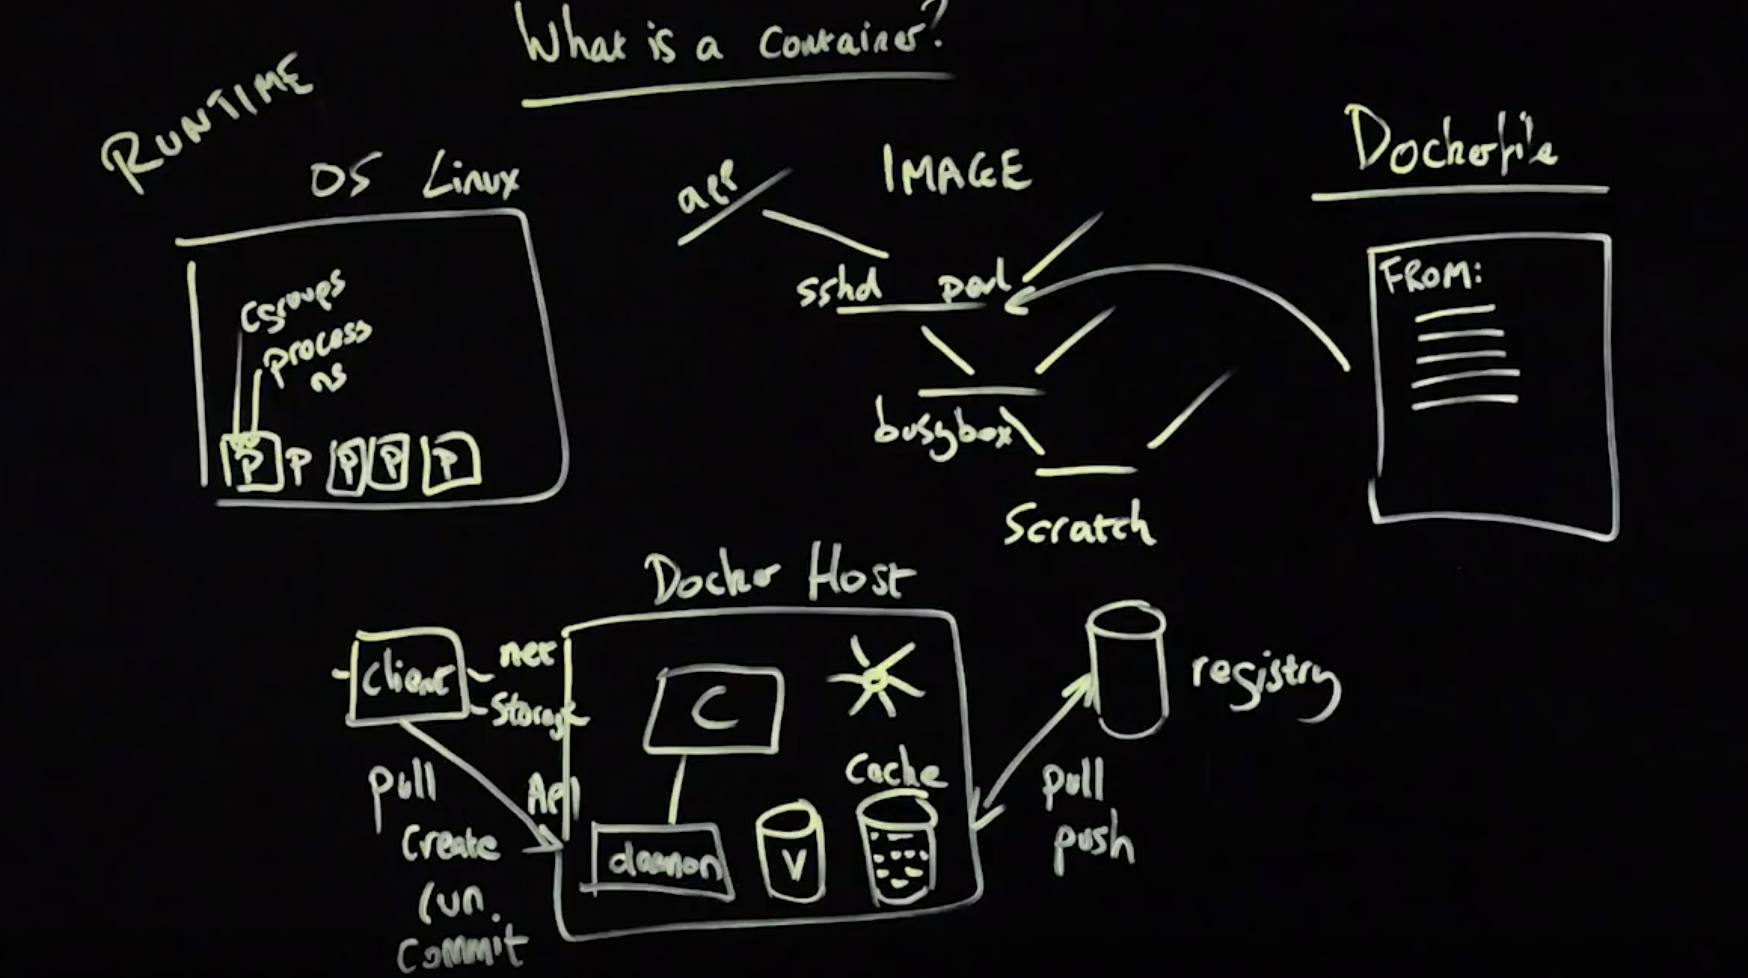 What is a container?
RUNTIME
OS Linux
cgroups
process
ns
P P P P P
IMAGE
app
sshd perl
busybox
Scratch
Dockerfile
FROM:
Docker Host
client
net
Storage
pull
API
create
run.
commit
C
daemon
V
Cache
registry
pull
push